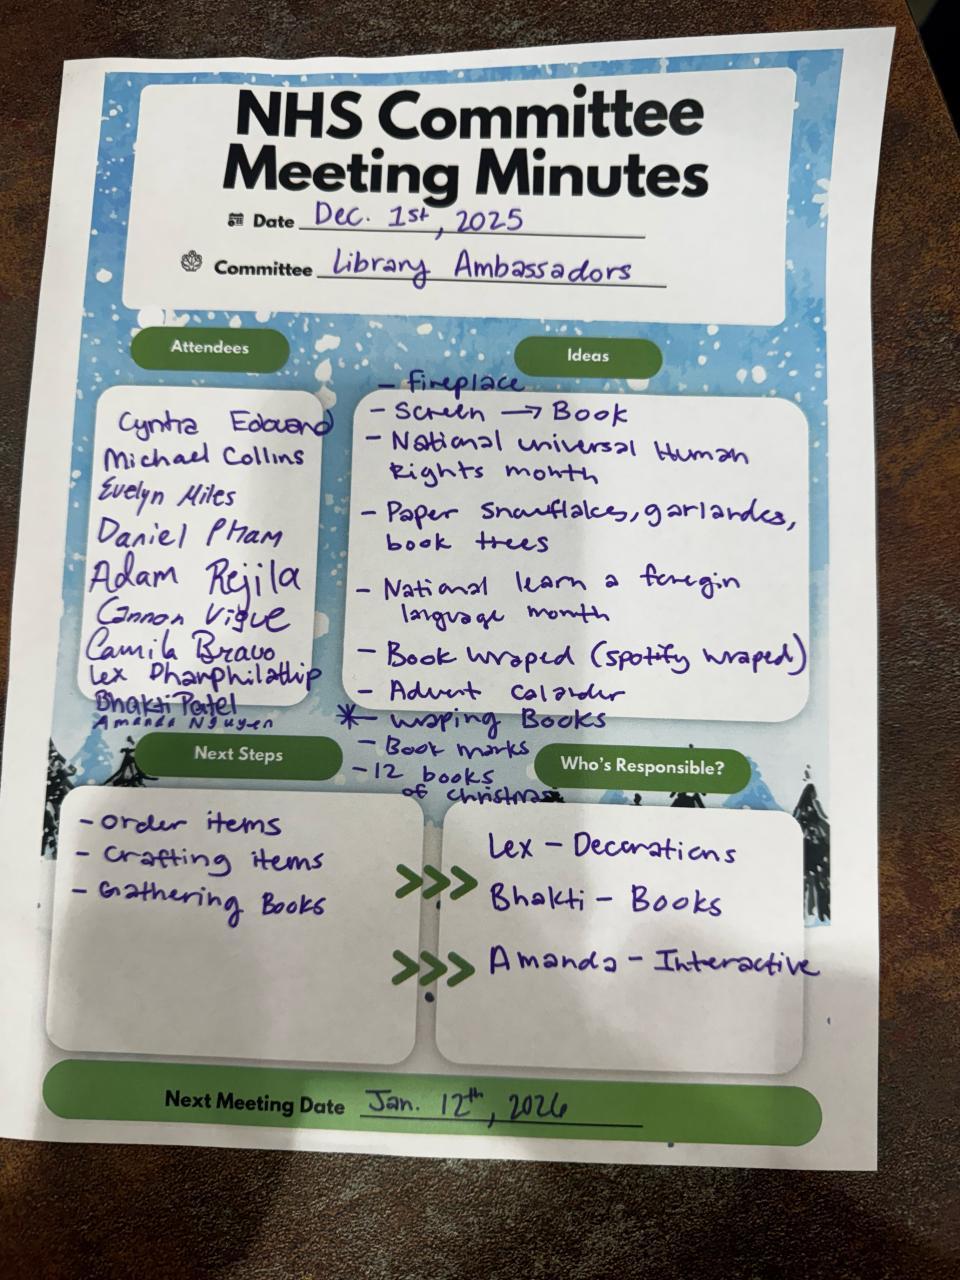 NHS Committee
Meeting Minutes
Date Dec. 1st, 2025
Committee Library Ambassadors
Attendees
Cyntia Edouard
Michael Collins
Evelyn Miles
Daniel Pham
Adam Rejila
Cannon Vigue
Camila Bravo
Lex Phanphilathip
Bhakti Patel
Amanda Nguyen
Ideas
- fireplace
- Screen → Book
- National universal Human
Rights month
- Paper snowflakes, garlandes,
book trees
- National learn a foregin
language month
- Book wraped (spotify wraped)
- Advent calander
*- wraping Books
- Book marks
- 12 books
of christmas
Next Steps
- order items
- Crafting items
- Gathering Books
Who's Responsible?
>>> Lex - Decorations
Bhakti - Books
>>> Amanda - Interactive
Next Meeting Date Jan. 12th, 2026